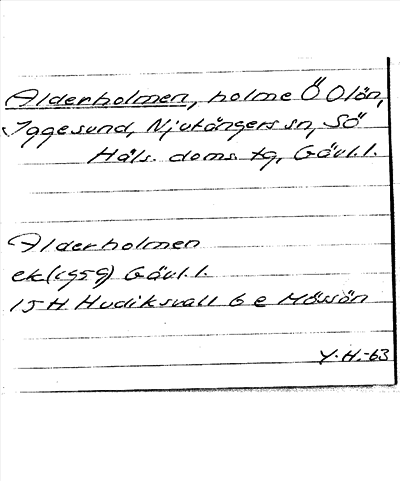 Alderholmen, holme Ö Olön,
Iggesund, Njutångers sn, SÖ
Häls. doms. tg, Gävl.l.
Alderholmen
ek(1959) Gävl.l.
15H Hudiksvall 6 e Mössön
Y.H.-63